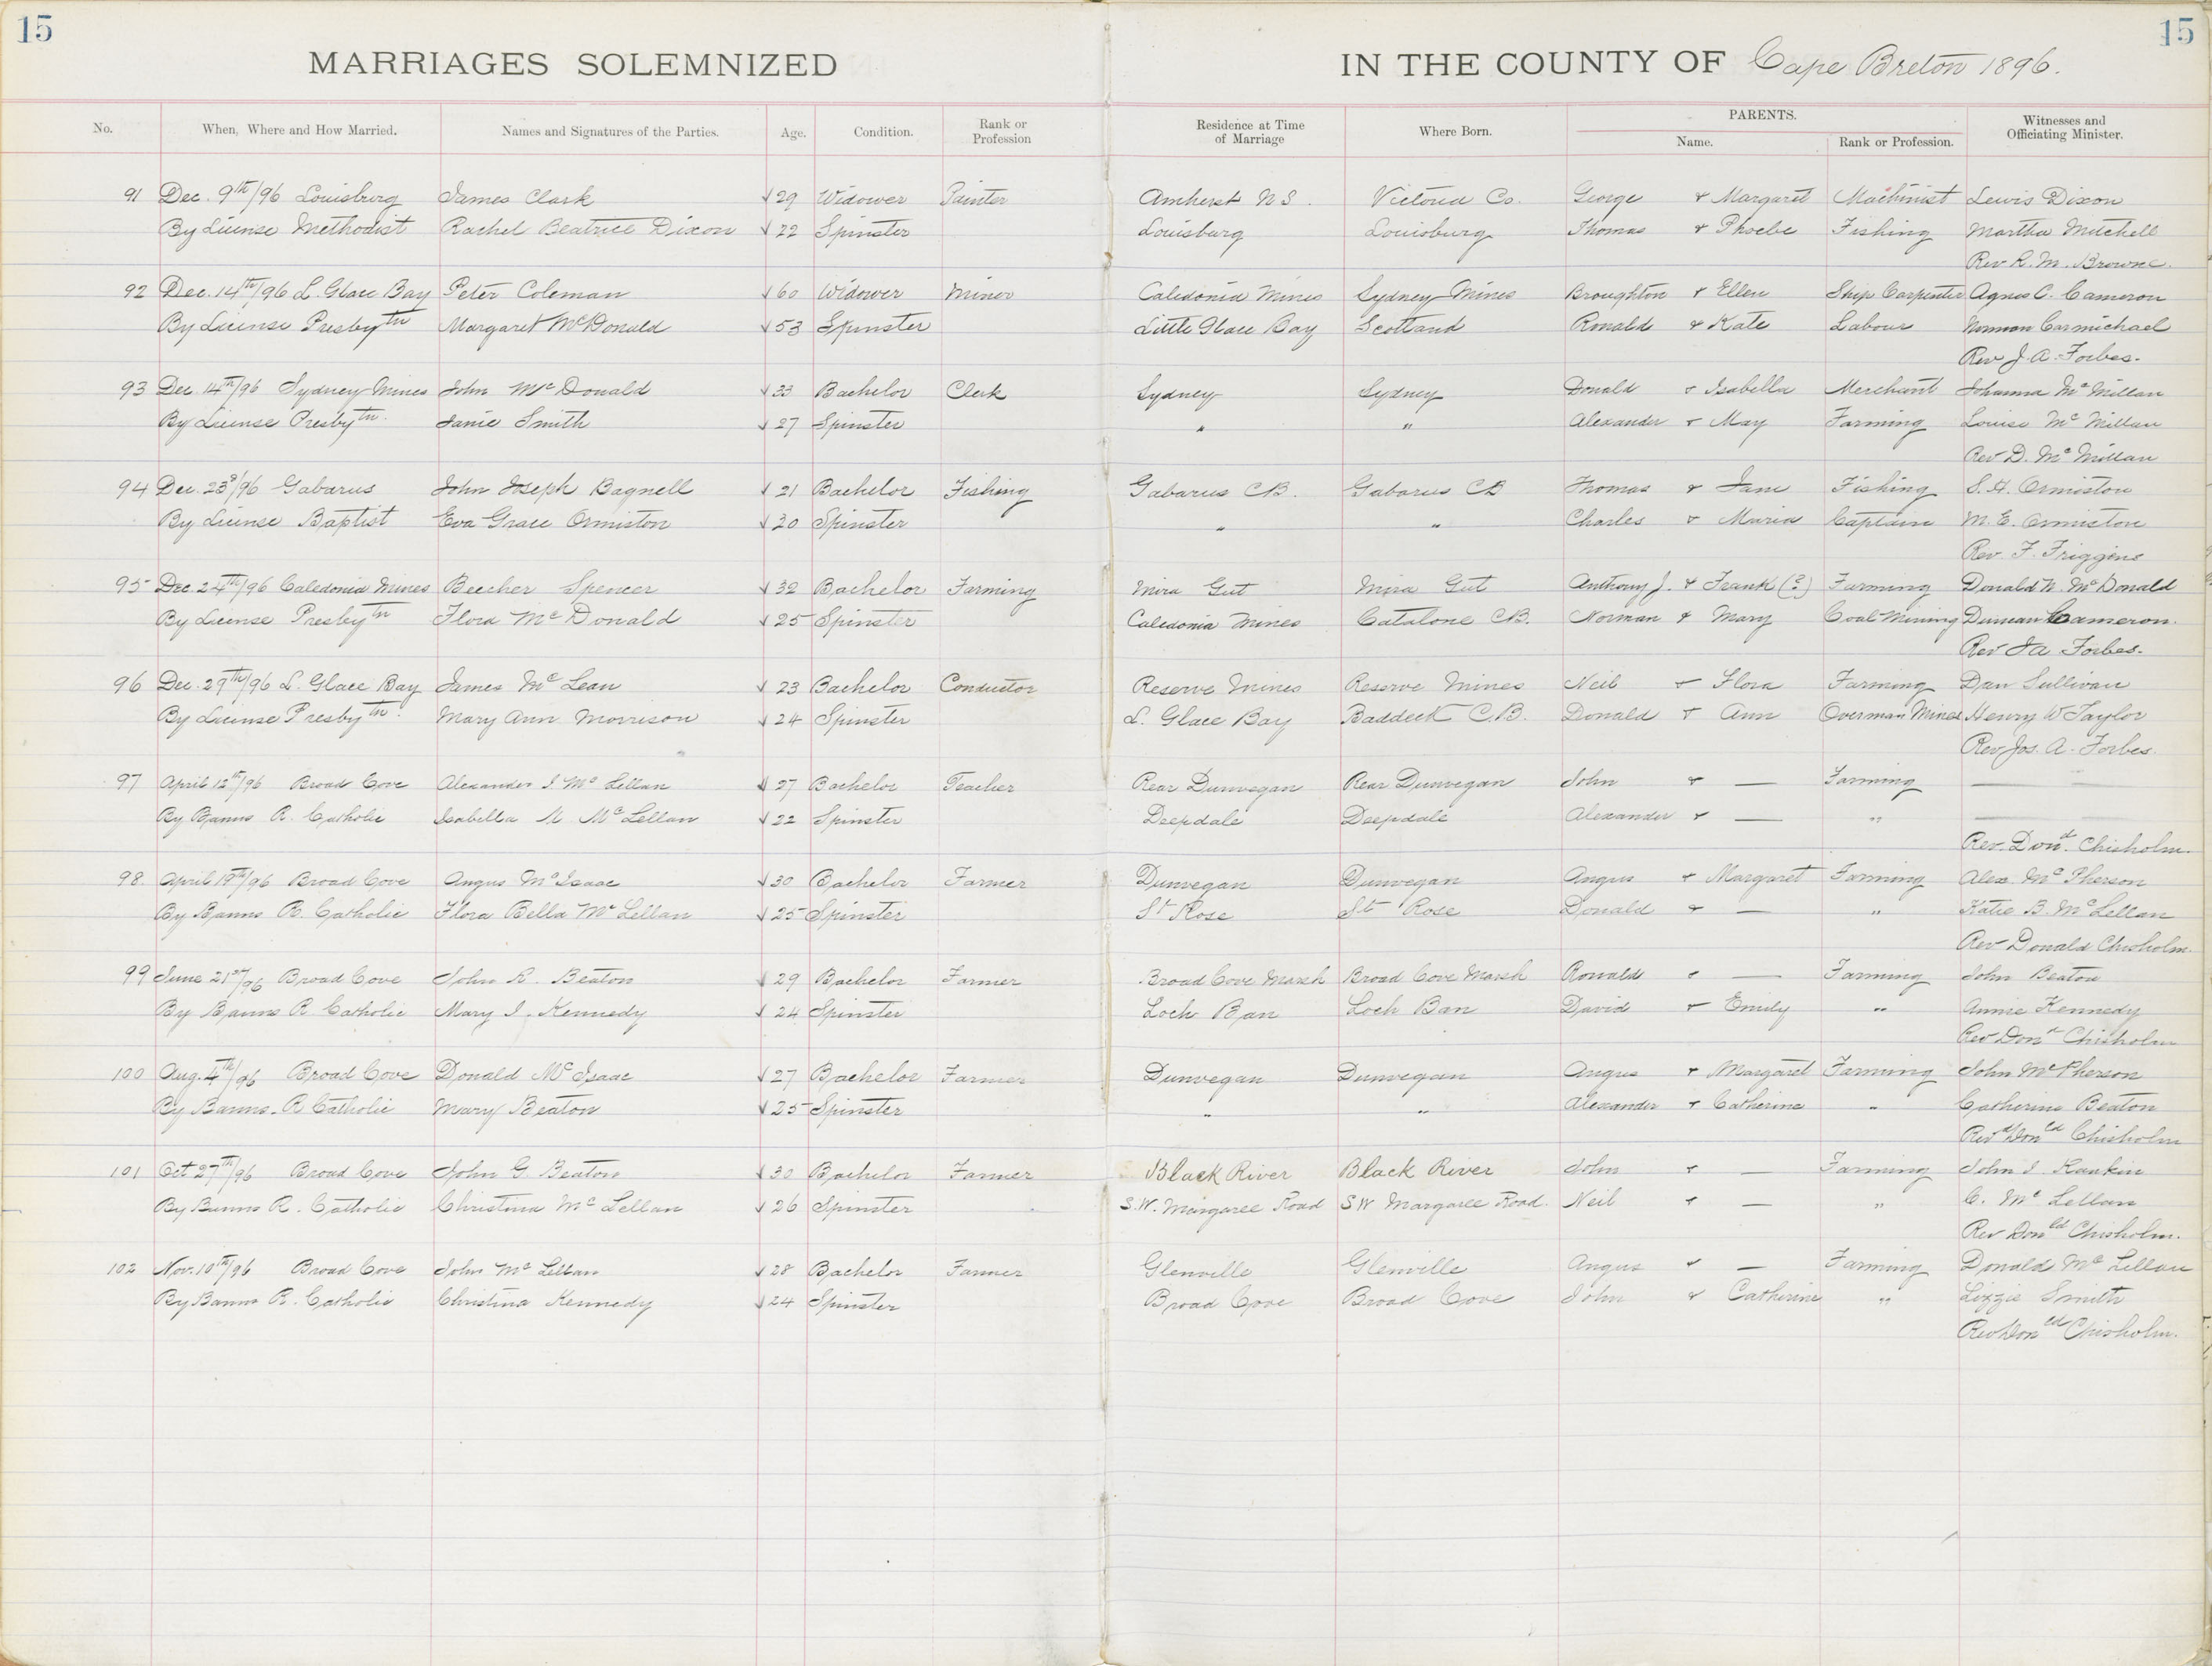 15 15
MARRIAGES SOLEMNIZED IN THE COUNTY OF Cape Breton 1896.
No. When, Where and How Married. Names and Signatures of the Parties. Age. Condition. Rank or Profession Residence at Time of Marriage Where Born. PARENTS. Name. Rank or Profession. Witnesses and Officiating Minister.
91 Dec. 9th/96 Louisburg James Clark √29 Widower Painter Amherst N S. Victoria Co. George & Margaret Machinist Lewis Dixon
By License Methodist Rachel Beatrice Dixon √22 Spinster Louisburg Louisburg Thomas & Phoebe Fishing Martha Mitchell
Rev R. M. Browne.
92 Dec. 14th/96 L. Glace Bay Peter Coleman √60 Widower Miner Caledonia Mines Sydney Mines Broughton & Ellen Ship Carpenter Agnes C. Cameron
By License Presbytn Margaret McDonald √53 Spinster Little Glace Bay Scotland Ronald & Kate Labour Norman Carmichael
Rev J. A. Forbes.
93 Dec. 14th/96 Sydney Mines John McDonald √33 Bachelor Clerk Sydney Sydney Donald & Isabella Merchant Johanna McMillan
By License Presbytn. Janie Smith √27 Spinster " " Alexander & May Farming Louise McMillan
Rev D. McMillan
94 Dec. 23d/96 Gabarus John Joseph Bagnell √21 Bachelor Fishing Gabarus CB. Gabarus CB Thomas & Jane Fishing S. H. Ormiston
By License Baptist Eva Grace Ormiston √20 Spinster " " Charles & Maria Captain M. E. Ormiston
Rev. F. Friggens
95 Dec. 24th/96 Caledonia Mines Beecher Spencer √32 Bachelor Farming Mira Gut Mira Gut Anthony J. & Frank (?) Farming Donald N. McDonald
By License Presbytn Flora McDonald √25 Spinster Caledonia Mines Catalone CB. Norman & Mary Coal Mining Duncan Cameron.
Rev JA Forbes.
96 Dec. 29th/96 L. Glace Bay James McLean √23 Bachelor Conductor Reserve Mines Reserve Mines Neil & Flora Farming Dan Sullivan
By License Presbytn. Mary Ann Morrison √24 Spinster L. Glace Bay Baddeck C.B. Donald & Ann Overman Mines Henry W Taylor
Rev Jos. A. Forbes
97 April 12th/96 Broad Cove Alexander J McLellan √27 Bachelor Teacher Rear Dunvegan Rear Dunvegan John & — Farming —
By Banns R. Catholic Isabella McLellan √22 Spinster Deepdale Deepdale Alexander & — " —
Rev. Dond. Chisholm.
98. April 19th/96 Broad Cove Angus McIsaac √30 Bachelor Farmer Dunvegan Dunvegan Angus & Margaret Farming Alex McPherson
By Banns R. Catholic Flora Bella McLellan √25 Spinster St Rose St Rose Donald & — " Katie B. McLellan
Rev Donald Chisholm.
99 June 21st/96 Broad Cove John R. Beaton √29 Bachelor Farmer Broad Cove Marsh Broad Cove Marsh Ronald & — Farming John Beaton
By Banns R. Catholic Mary J. Kennedy √24 Spinster Loch Ban Loch Ban David & Emily " Annie Kennedy
Rev Dond Chisholm
100 Aug. 4th/96 Broad Cove Donald McIsaac √27 Bachelor Farmer Dunvegan Dunvegan Angus & Margaret Farming John McPherson
By Banns. R Catholic Mary Beaton √25 Spinster " " Alexander & Catherine " Catherine Beaton
Revd Donld Chisholm
101 Oct 27th/96 Broad Cove John G. Beaton √30 Bachelor Farmer Black River Black River John & — Farming John J. Rankin
By Banns R. Catholic Christina McLellan √26 Spinster S.W. Margaree Road SW Margaree Road. Neil & — " C. McLellan
Rev Donld Chisholm.
102 Nov. 10th/96 Broad Cove John McLellan √28 Bachelor Farmer Glenville Glenville Angus & — Farming Donald McLellan
By Banns R. Catholic Christina Kennedy √24 Spinster Broad Cove Broad Cove John & Catherine " Lizzie Smith
Rev Donld Chisholm.